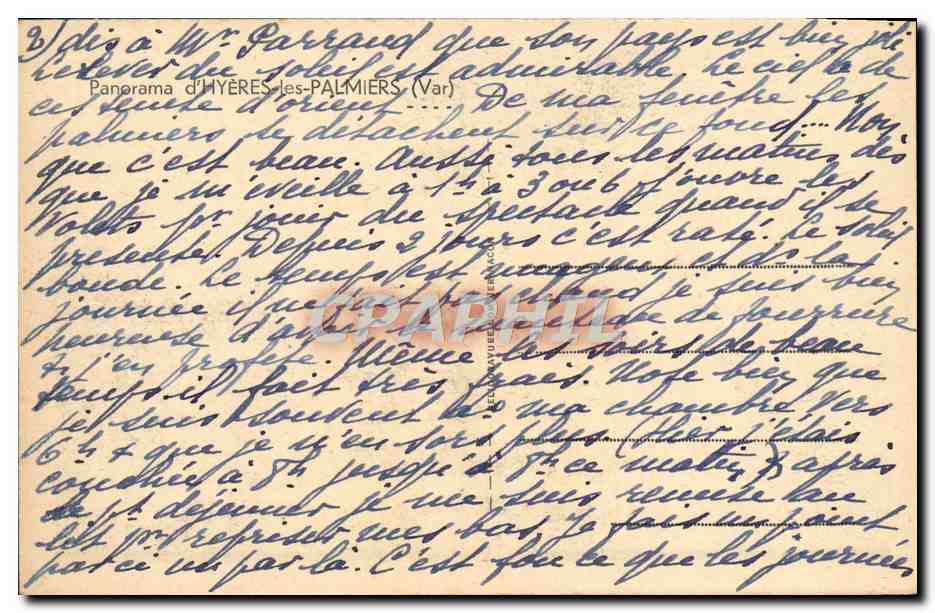 2) dis à Mr Parraud que son pays est bien joli
Le lever du soleil est admirable. Le ciel a de
Panorama d'HYÈRES-les-PALMIERS (Var)
ces teintes d'orient .... De ma fenêtre les
palmiers se détachent sur ce fond.... Mon
que c'est beau. Aussi tous les matins, dès
que je m'éveille à 1h à 3 ou 6 j'ouvre les
Volets pr jouir du spectacle quand il se
présente. Depuis 2 jours c'est raté. Le soleil
boude. Le temps est et ds la
journée il ne fait pas chaud je suis bien
heureuse d'avoir de fourrure
+ j'en profite. Même les soirs de beau
temps il fait très frais. Note bien que
je suis souvent ds ma chambre vers
6h + que je n'en sors plus (hier j'étais
couchée à 8h jusqu'à 8h ce matin) + après
le pt déjeuner je me suis remise au
lit pr repriser mes bas. Je fais un point
par ci un par là. C'est fou ce que les journées
CPAPHIL